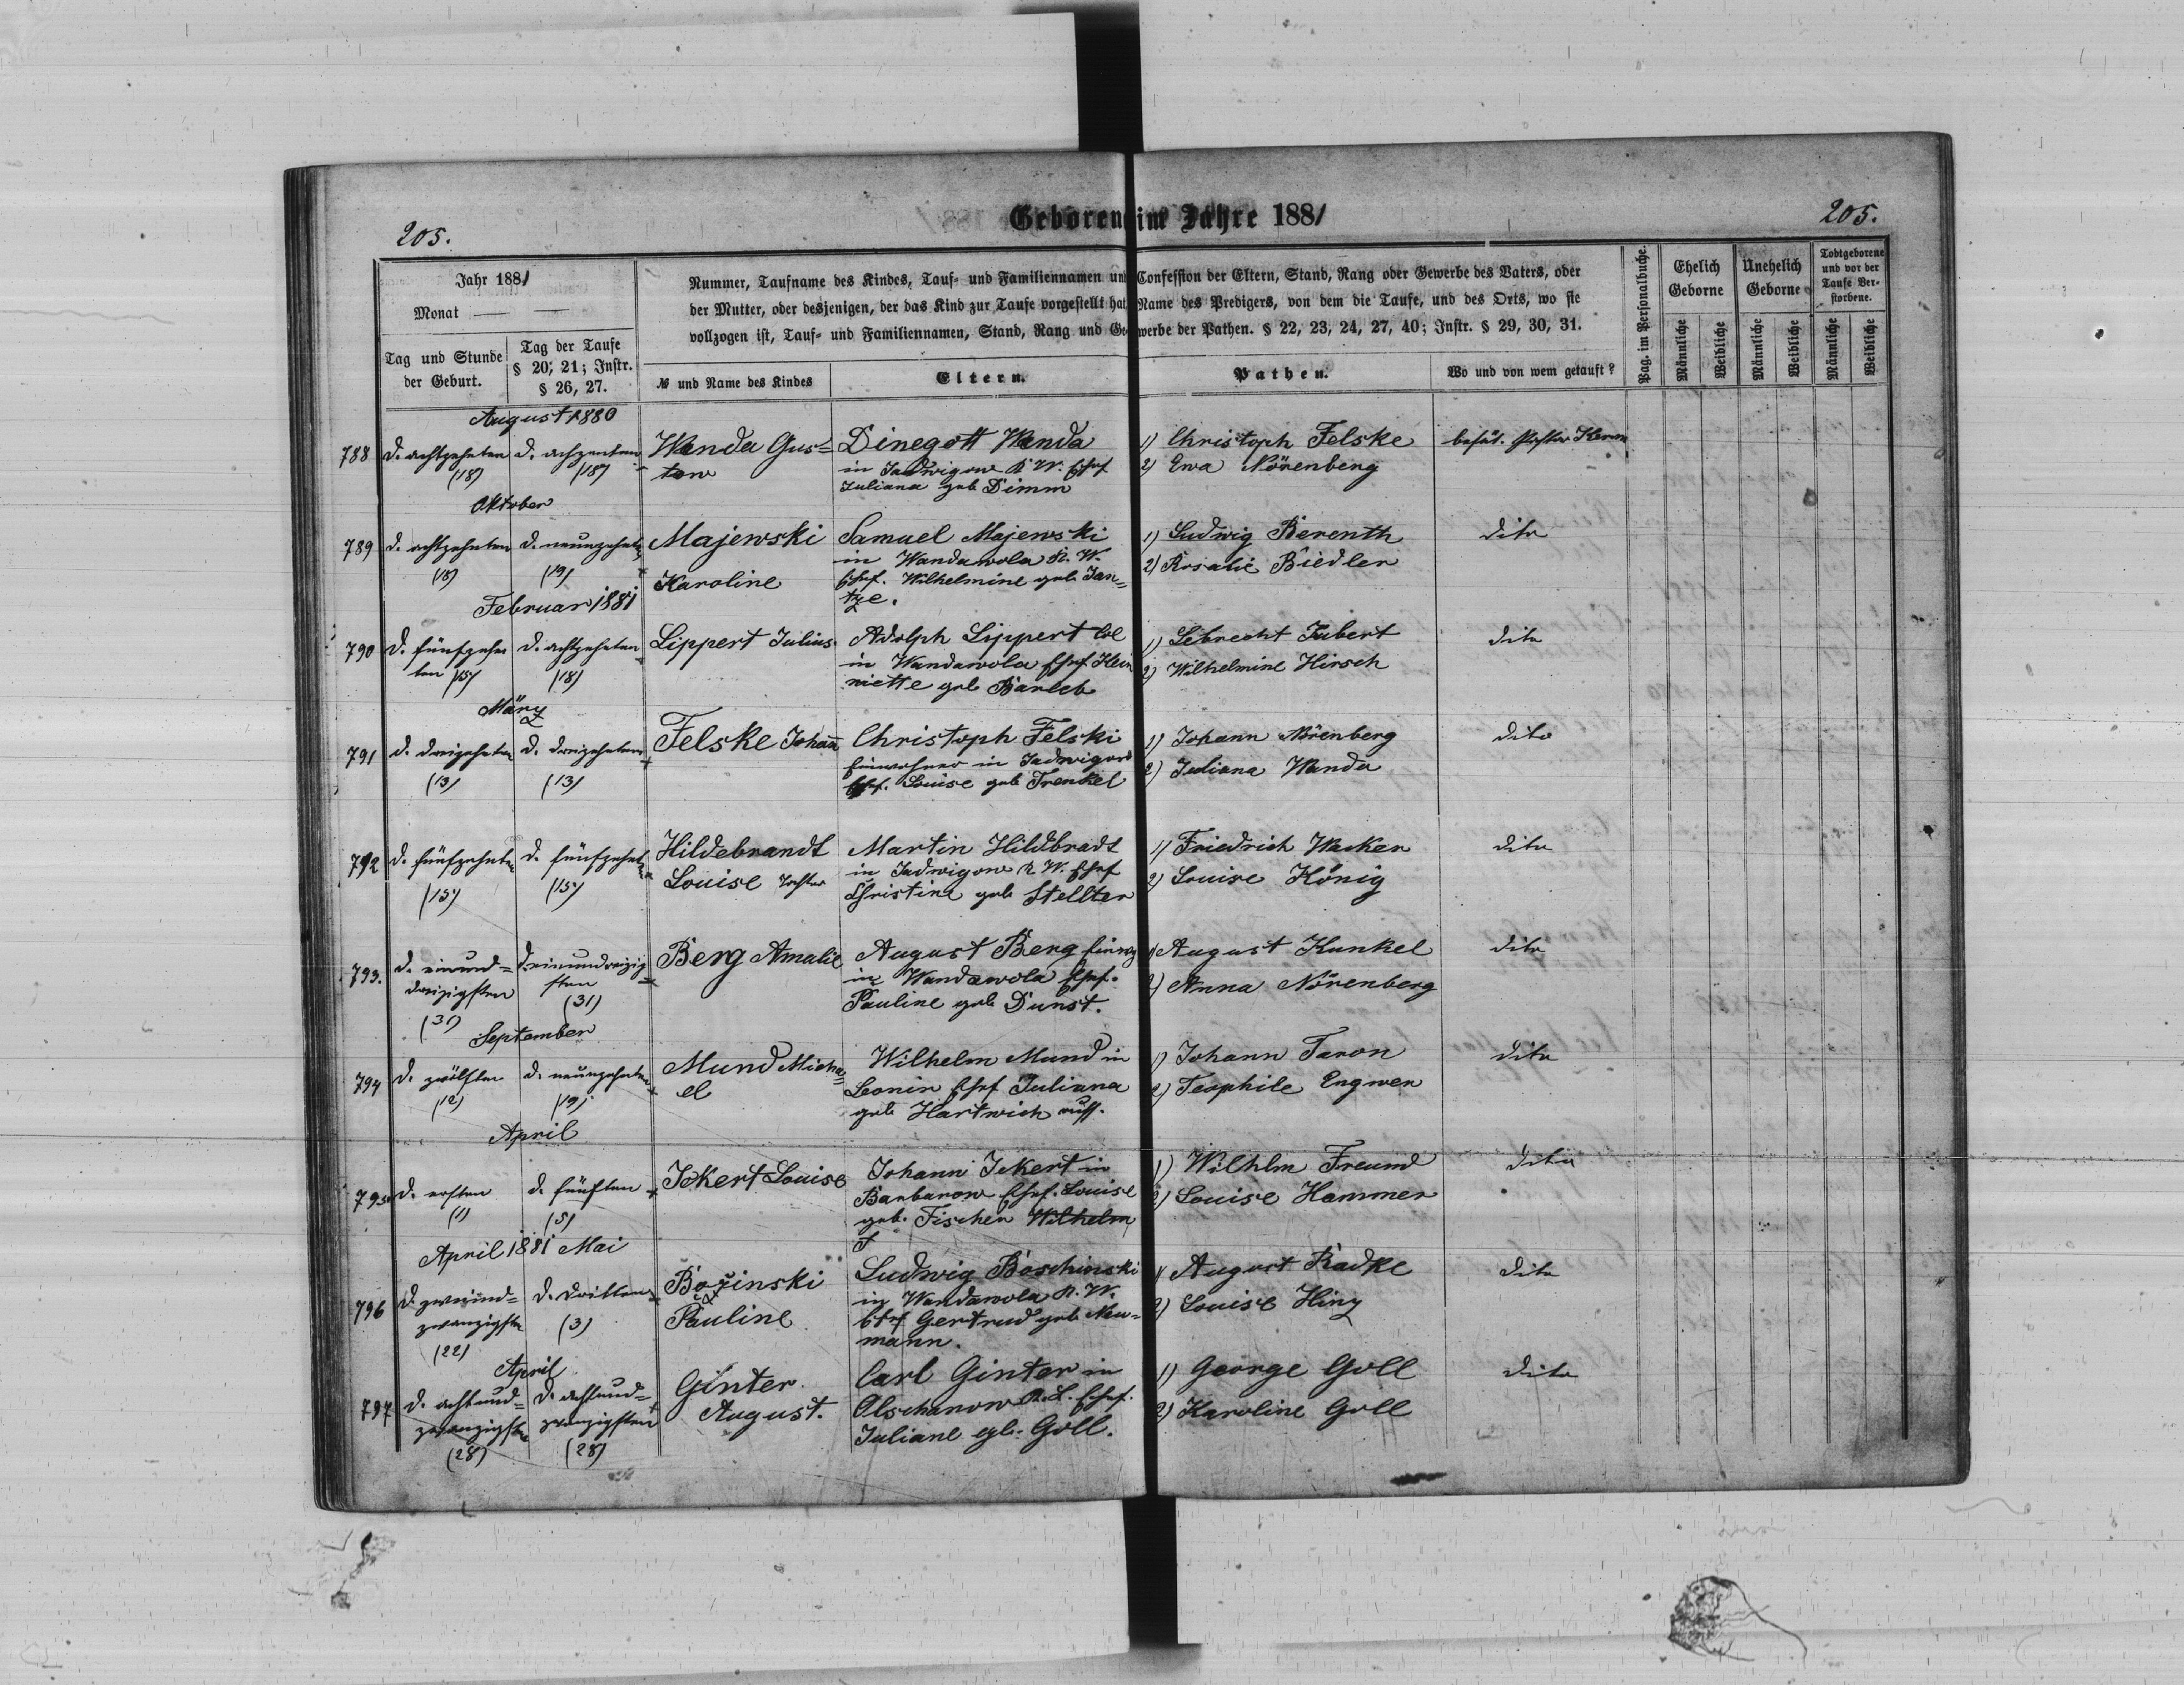 205.
Geboren im Jahre 1881
205.
Jahr 1881
Monat
Tag und Stunde der Geburt.
Tag der Taufe § 20, 21; Instr. § 26, 27.
Nummer, Taufname des Kindes, Tauf- und Familiennamen und Confession der Eltern, Stand, Rang oder Gewerbe des Vaters, oder
der Mutter, oder desjenigen, der das Kind zur Taufe vorgestellt hat, Name des Predigers, von dem die Taufe, und des Orts, wo sie
vollzogen ist, Tauf- und Familiennamen, Stand, Rang und Gewerbe der Pathen. § 22, 23, 24, 27, 40; Instr. § 29, 30, 31.
№ und Name des Kindes
Eltern.
Pathen.
Wo und von wem getauft?
Pag. im Personalbuche.
Ehelich Geborne
Unehelich Geborne
Todtgeborene und vor der Taufe Verstorbene.
Männliche
Weibliche
Männliche
Weibliche
Männliche
Weibliche
August 1880
788 d. achtzehnten d. achzenten Wanda Gus= Dinegott Wanda 1) Christoph Felske bestät. Pastor
(18) (18) taw in Jadwigow R. W. Ehef 2) Ewa Nörenberg
Juliana geb Dimm
Oktober
789 d. achtzehnten d. neunzehnten Majewski Samuel Majewski 1) Ludwig Berenth dito
(18) (19) Karoline in Wandawola R. W. 2) Rosalie Biedler
Ehef. Wilhelmine geb. Jan=
tze.
Februar 1881
790 d. fünfzehn d. achtzehnten Lippert Julius. Adolph Lippert Col 1) Lebrecht Jubert dito
ten (15) (18) in Wandawola Ehef. Hein 2) Wilhelmine Hirsch
riette geb Barleb
März
791 d. dreizehnten d. dreizehnten Felske Johann Christoph Felski 1) Johann Nörenberg dito
(13) (13) Einwohner in Jadwigow 2) Juliana Wanda
Ehef. Louise geb Frenkel
792 d. fünfzehnten d. fünfzehnten Hildebrandt Martin Hildbradt 1) Friedrich Wacker dito
(15) (15) Louise Tochter in Jadwigow R. W. Ehef 2) Louise König
Christine geb Stellter
793. d. einund= d. einunddreizig Berg Amalie August Berg Einwo 1) August Kunkel dito
dreizigsten sten in Wandawola Ehef. 2) Anna Nörenberg
(31) (31) Pauline geb Dunst.
September
794 d. zwölften d. neunzehnten Mund Micha= Wilhelm Mund in 1) Johann Taron dito
(12) (19) el Leonin Ehef Juliana 2) Teophile Engwer
geb Hartwich
April
795 d. ersten d. fünften Ickert Louise Johann Ickert in 1) Wilhlm Freund dito
(1) (5) Barbarow Ehef. Louise 2) Louise Hammer
geb. Fischer Wilhelm
April 1881 Mai
796 d. zweiund= d. dritten Bożinski Ludwig Boschinski 1) August Radke dito
zwanzigsten (3) Pauline in Wandawola R. W. 2) Louise Hinz
(22) Ehef Gertrud geb Neu=
mann.
April
797 d. achtund= d. achtund= Ginter Carl Ginter in 1) George Goll dito
zwanzigsten zwanzigsten August. Olschanow Ehef. 2) Karoline Goll
(28) (28) Juliane geb. Goll.